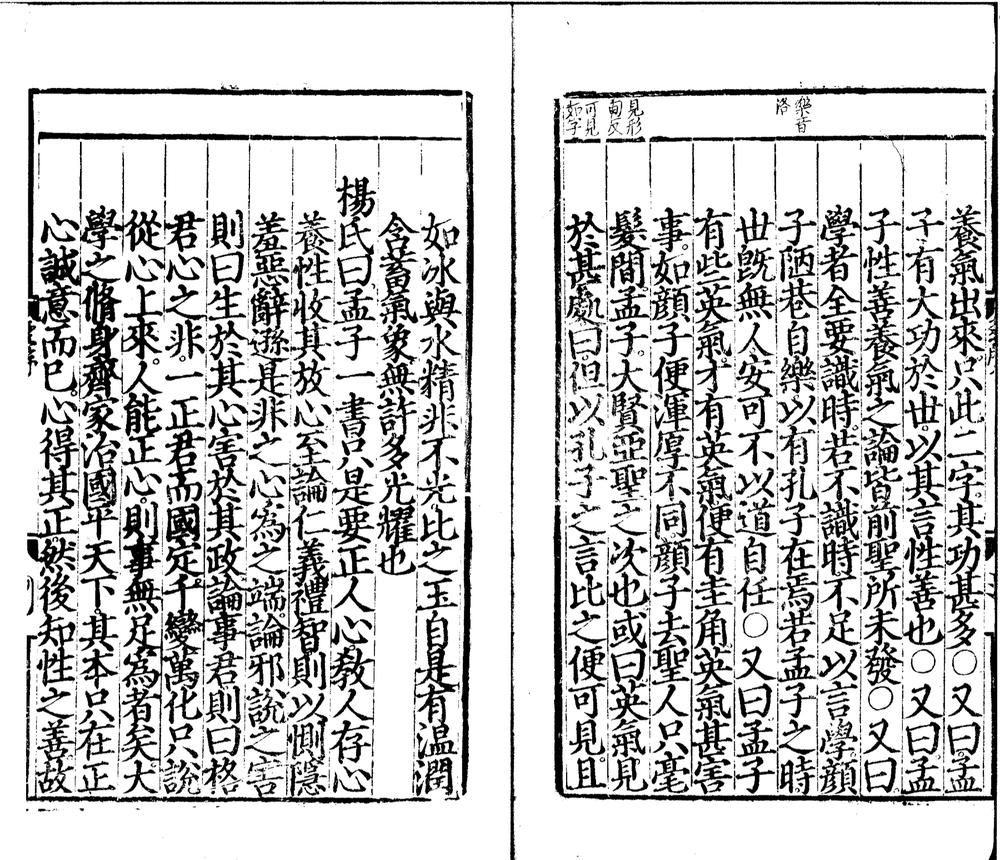 養氣出來只此二字其功甚多○又曰孟
子有大功於世以其言性善也○又曰孟
子性善養氣之論皆前聖所未發○又曰
學者全要識時若不識時不足以言學顏
子陋巷自樂以有孔子在焉若孟子之時
世旣無人安可不以道自任○又曰孟子
有些英氣才有英氣便有圭角英氣甚害
事如顏子便渾厚不同顏子去聖人只毫
髮間孟子大賢亞聖之次也或曰英氣見
於甚處曰但以孔子之言比之便可見且
樂音
洛
見形
甸反
可見
如字
如冰與水精非不光比之玉自是有温潤
含蓄氣象無許多光耀也
楊氏曰孟子一書只是要正人心敎人存心
養性收其放心至論仁義禮智則以惻隱
羞惡辭遜是非之心爲之端論邪說之害
則曰生於其心害於其政論事君則曰格
君心之非一正君而國定千變萬化只說
從心上來人能正心則事無足爲者矣大
學之脩身齊家治國平天下其本只在正
心誠意而已心得其正然後知性之善故